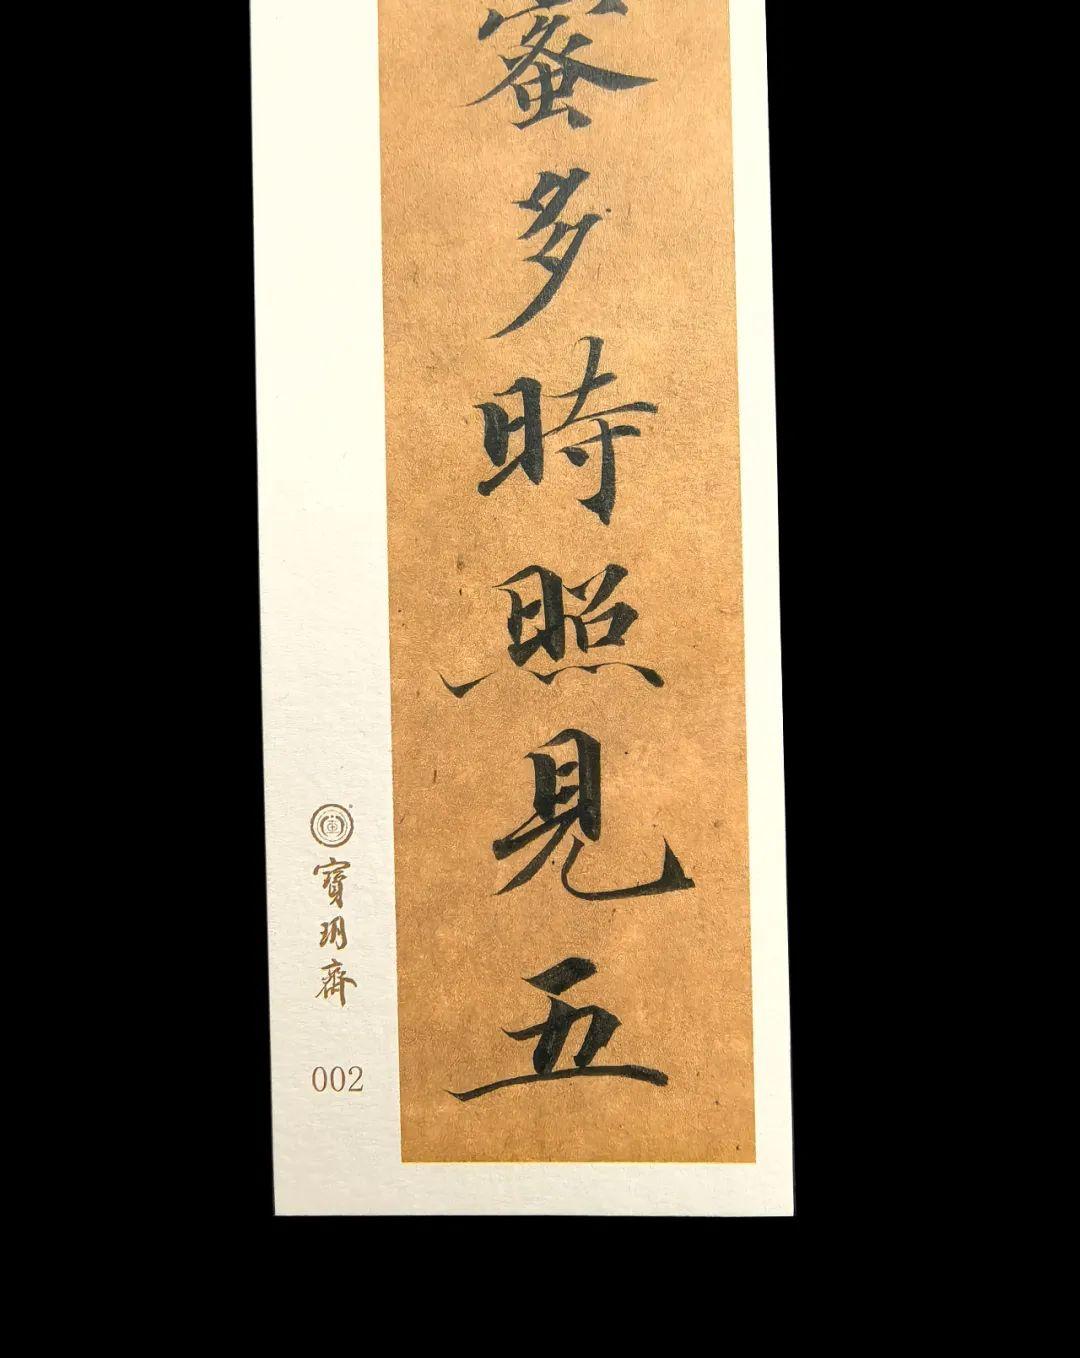 蜜多時照見五
寶玥齋
002